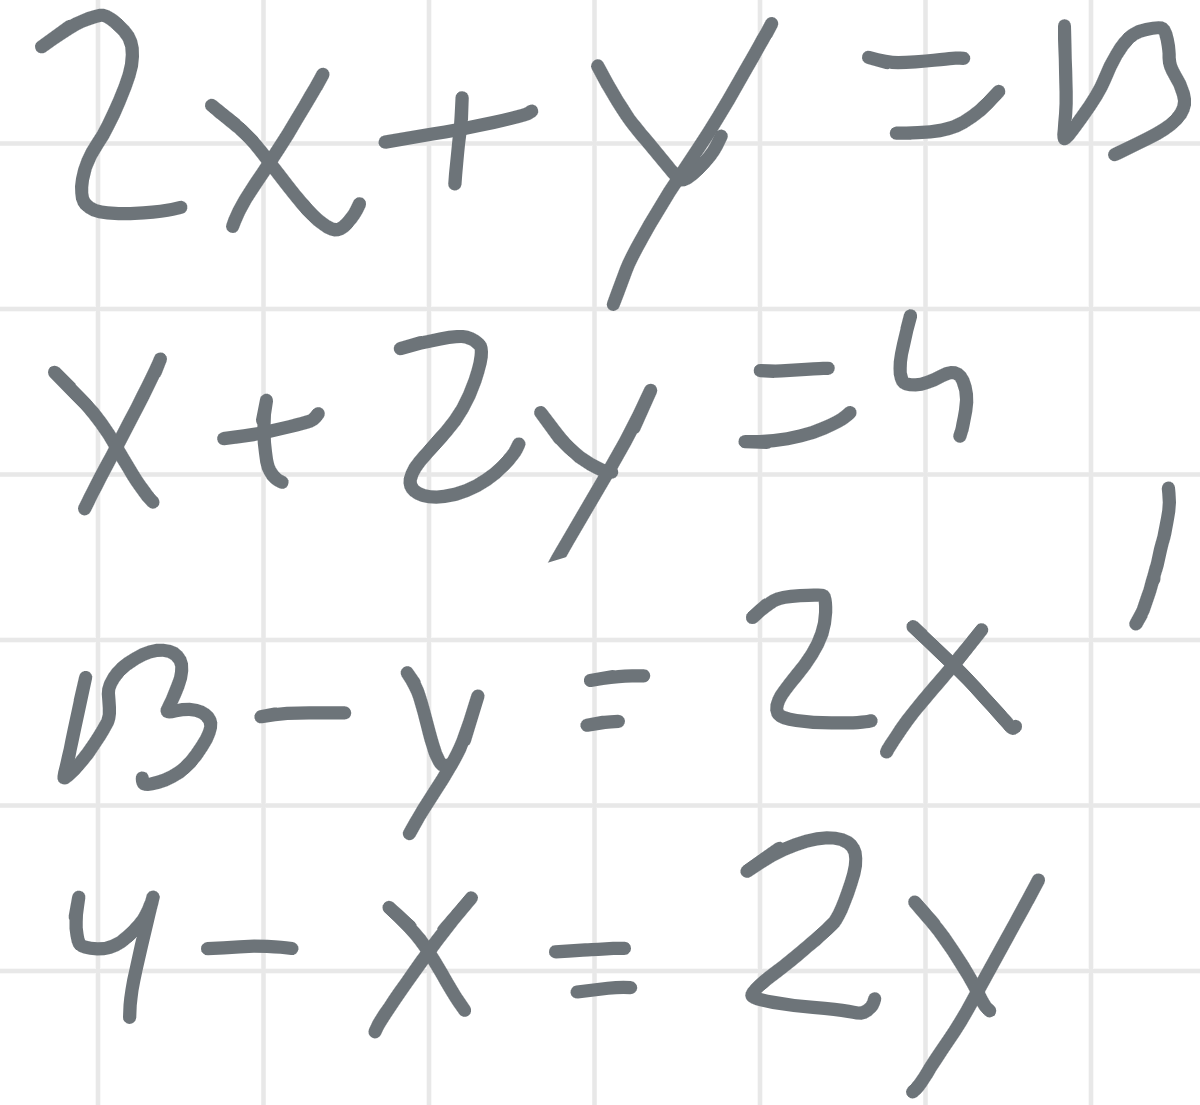 2x + y = 13
x + 2y = 4
13 - y = 2x
4 - x = 2y